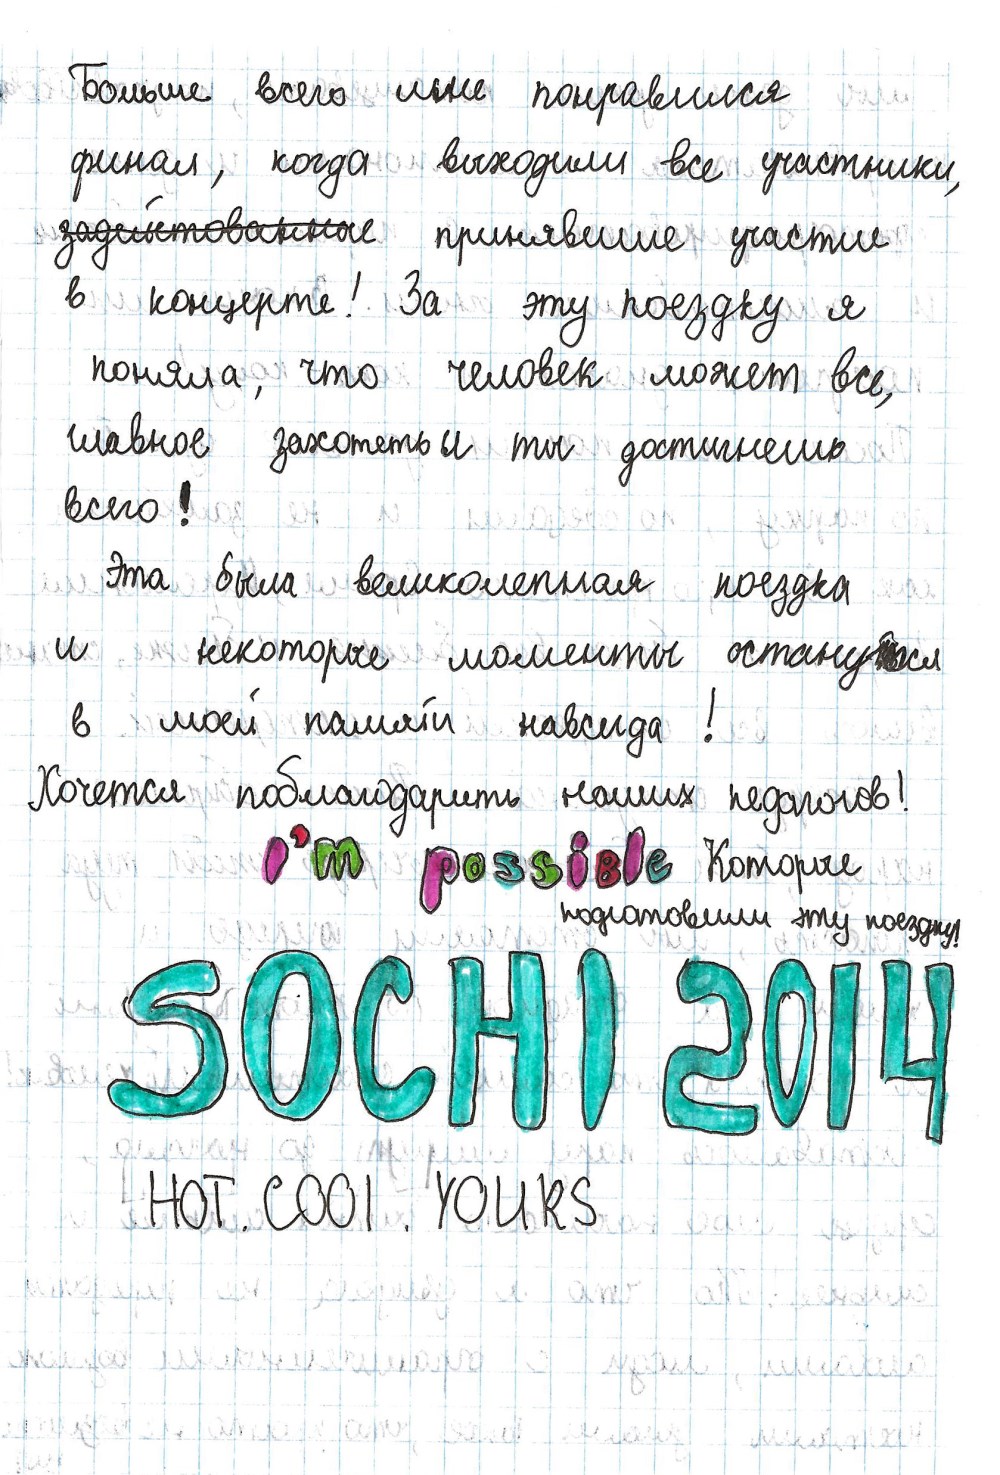 Больше всего мне понравился
финал, когда выходили все участники,
задействованные принявшие участие
в концерте! За эту поездку я
поняла, что человек может все,
главное захотеть и ты достигнешь
всего!
Эта была великолепная поездка
и некоторые моменты останутся
в моей памяти навсегда!
Хочется поблагодарить наших педагогов!
I'm possible Которые
подготовили эту поездку!
SOCHI 2014
HOT. COOl. YOURS